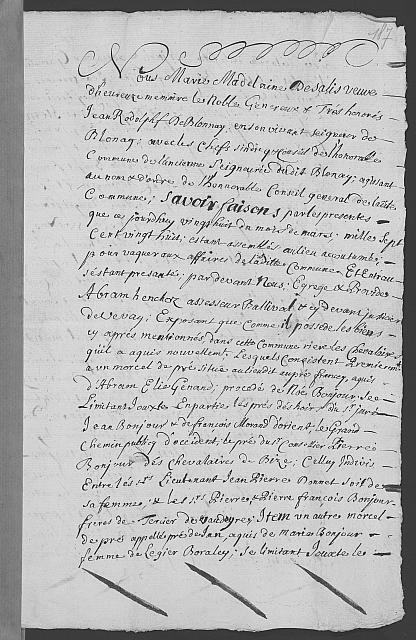 117
Nous Marie Madelaine De Salis veuve
d'heureuse memoire le Noble Genereux & Tres honoré
Jean Rodolph De Blonnay, en son vivant seigneur de
Blonay, avec les Chefs sindics & Conseil de l'honorable
Commune de l'ancienne Seigneurie dudit Blonay, agissant
au nom & d'ordre de l'honnorable Conseil general de ladte
Commune, Savoir faisons, par les presentes
que ce jourdhuy vingt huit du mois de mars, mille Sept
Cent vingt huit, estant assemblés au lieu accoutumé,
pour vaquer aux affaires de ladite Commune, Et en trau
s'estant presanté, par devant Nous, Egrege & Provide
Abram henchoz assesseur Ballival & cy devant justicier
de vevay; Exposant que, comme il possede les biens
cy apres mentionnés, dans cette Commune rière les chevalaires
qu'il a aquis nouvellement, Lesquels Consistent Premierement
a un morcel de pré situé au lieu dit au pré francey, aquis
d'Abram Elie Genand, procedé de Noé Bonjour se
Limitant Jouxte En partie les prés des hoirs du Sr. juré
Jean Bonjour & de françois Morand d'orient, le Grand
Chemin publicq d'occident, le pré du Sr. Conseiller Pierre
Bonjour des Chevalaires de Bize; Celluy Indivis
Entre les Srs. Lieutenant Jean Pierre Bonnet soit de
sa femme, & les Srs. Pierre & Pierre françois Bonjour
freres de Tercier de vandeyre; Item un autre morcel
de pré appellé pré de Inn, aquis de Maria Bonjour
femme de Legier Boraley; se limitant Jouxte le